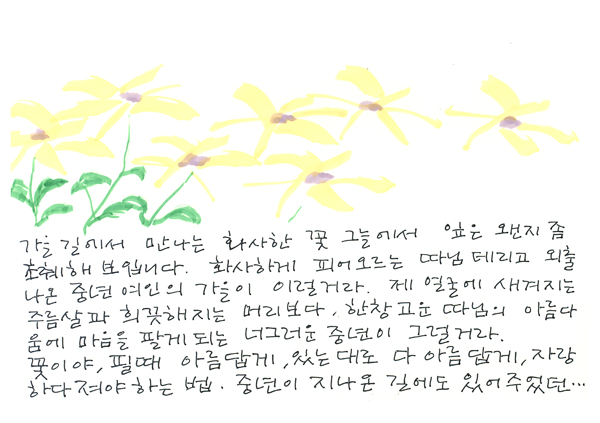 가을 길에서 만나는 화사한 꽃 그늘에서 잎은 왠지 좀
초췌해 보입니다. 화사하게 피어오르는 따님 데리고 외출
나온 중년 여인의 가을이 이럴거라. 제 얼굴에 새겨지는
주름살과 희끗해지는 머리보다, 한창 고운 따님의 아름다
움에 마음을 팔게 되는 너그러운 중년이 그럴거라.
꽃이야, 필때 아름답게, 있는대로 다 아름답게, 자랑
하다 져야 하는 법. 중년이 지나온 길에도 있어 주었던…